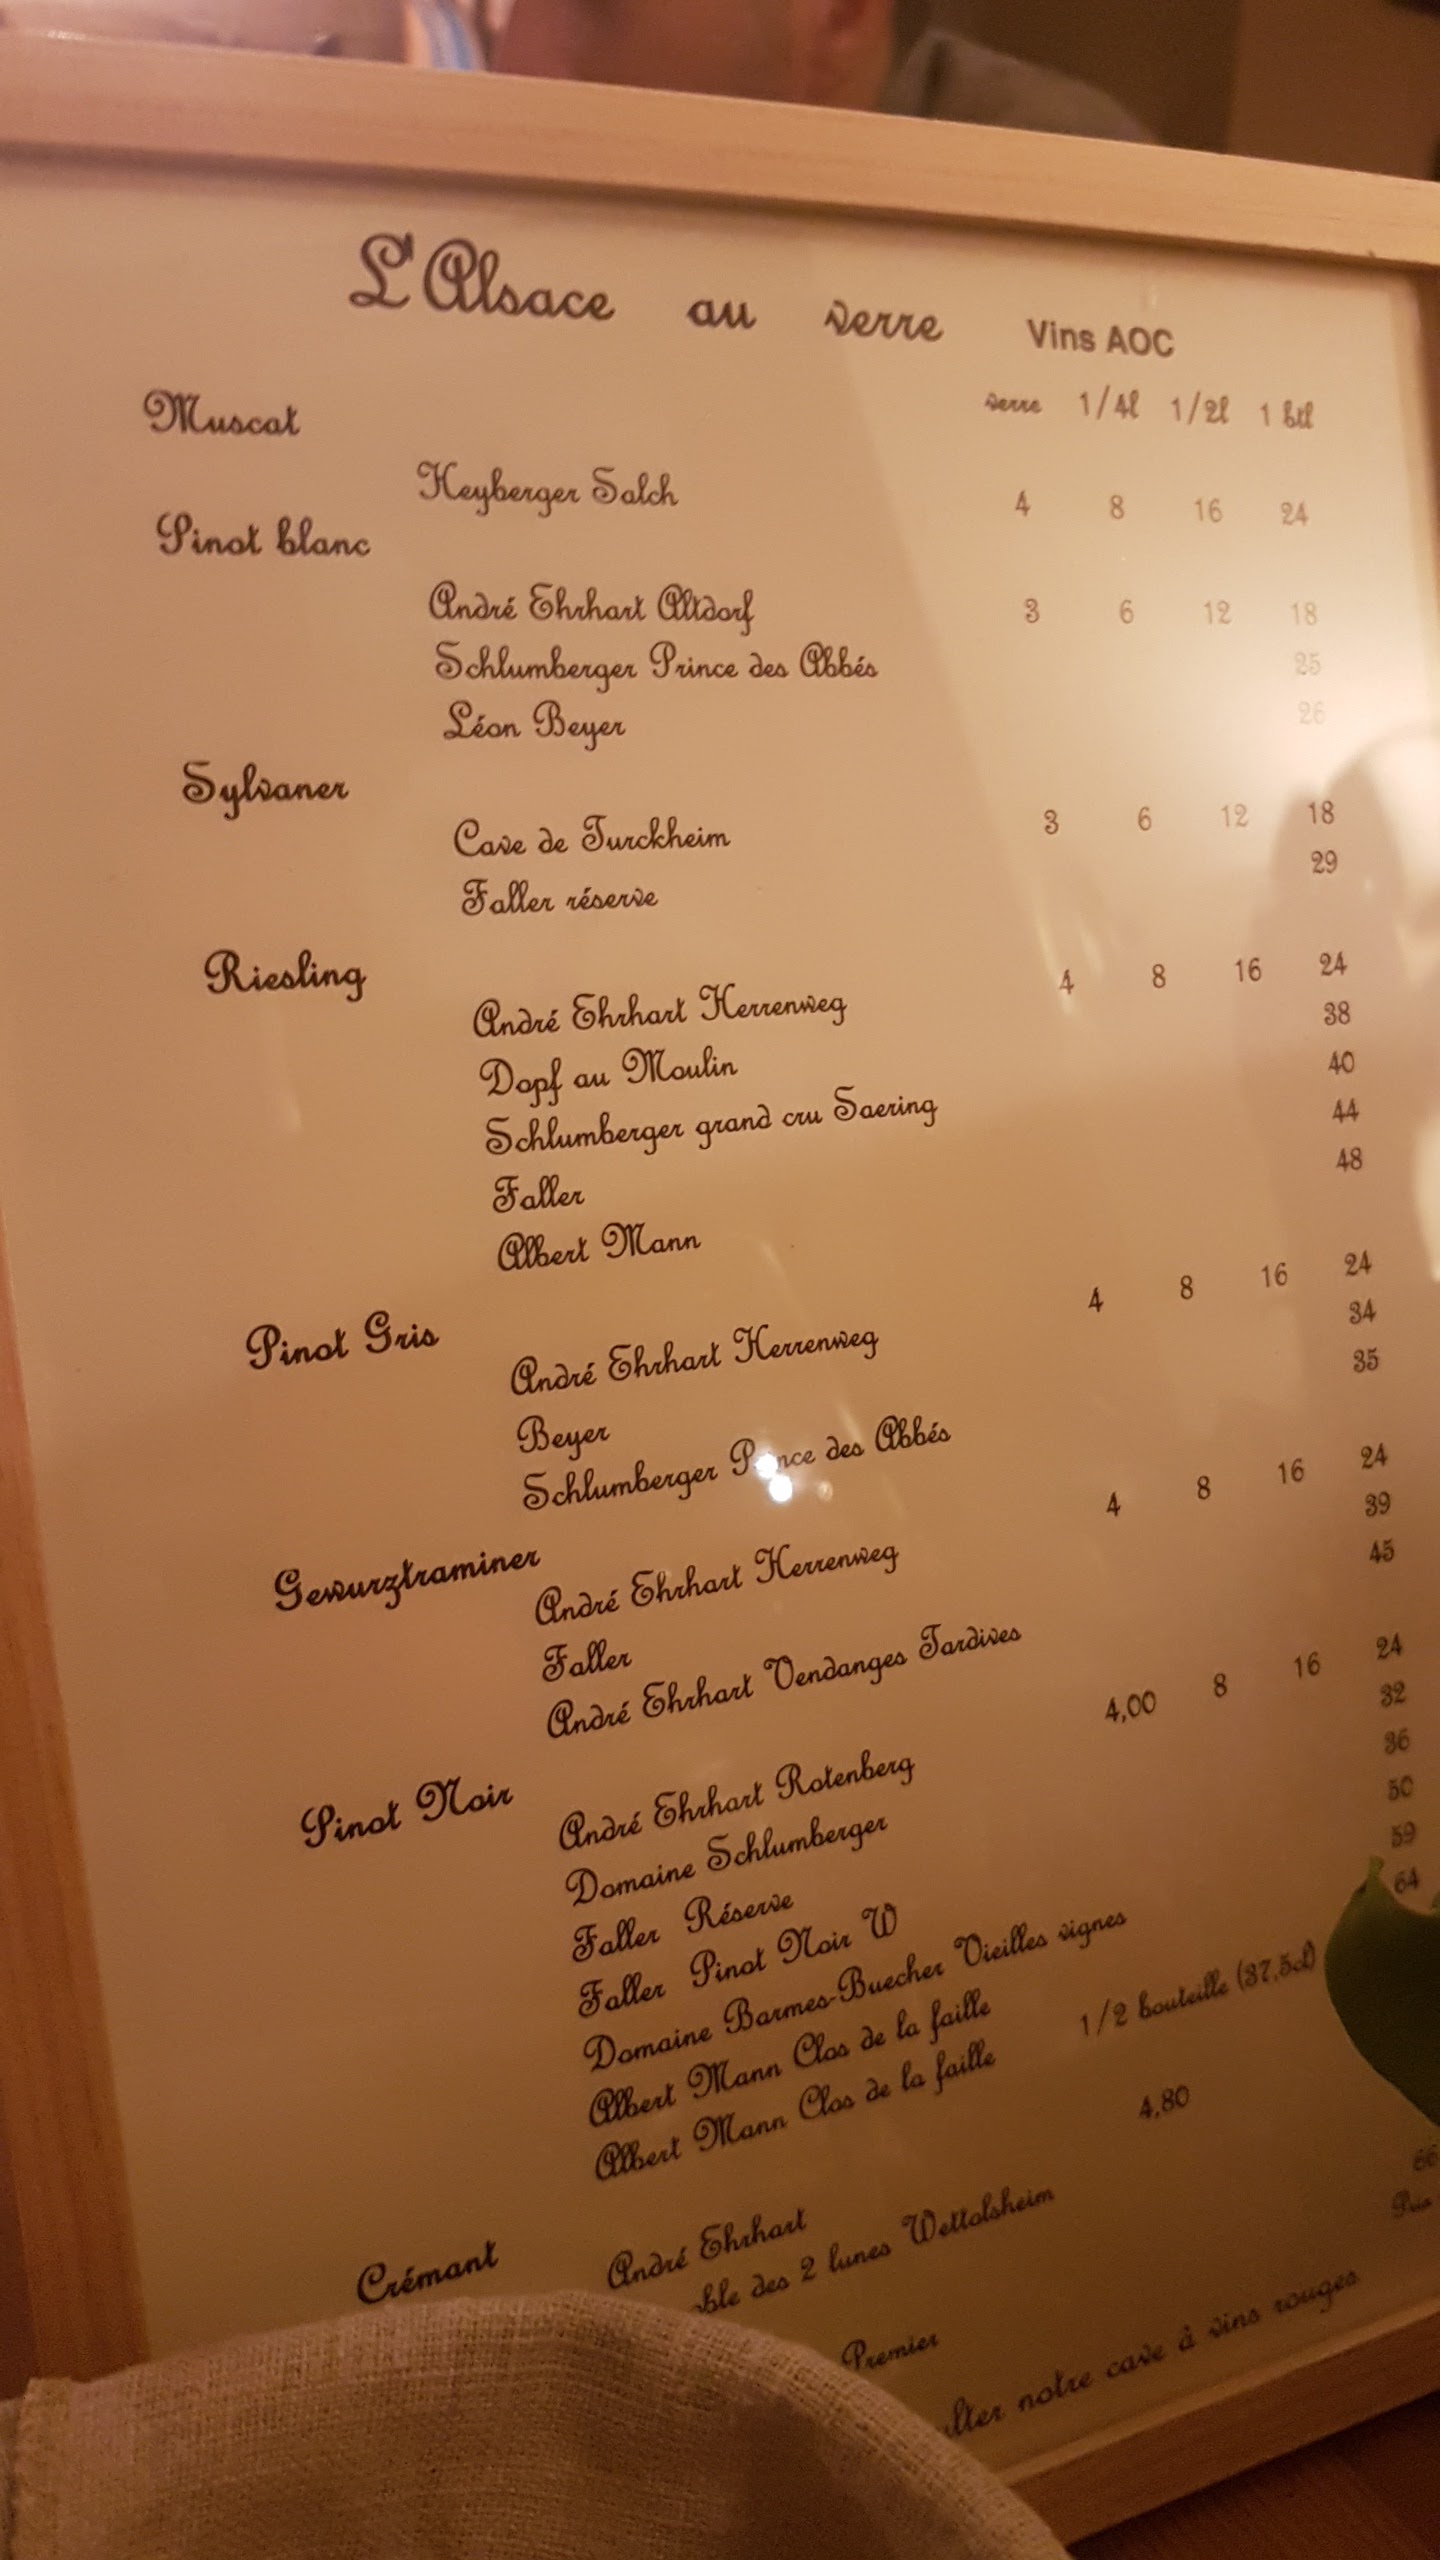 L'Alsace au verre Vins AOC
verre 1/4l 1/2l 1 btl
Muscat
Heyberger Salch 4 8 16 24
Pinot blanc
André Ehrhart Altdorf 3 6 12 18
Schlumberger Prince des Abbés 25
Léon Beyer 26
Sylvaner
Cave de Turckheim 3 6 12 18
Faller réserve 29
Riesling
André Ehrhart Herrenweg 4 8 16 24
Dopf au Moulin 38
Schlumberger grand cru Saering 40
Faller 44
Albert Mann 48
Pinot Gris
André Ehrhart Herrenweg 4 8 16 24
Beyer 34
Schlumberger Prince des Abbés 35
Gewurztraminer
André Ehrhart Herrenweg 4 8 16 24
Faller 39
André Ehrhart Vendanges Tardives 45
Pinot Noir
André Ehrhart Rotenberg 4,00 8 16 24
Domaine Schlumberger 32
Faller Réserve 36
Faller Pinot Noir W 50
Domaine Barmes-Buecher Vieilles vignes 59
Albert Mann Clos de la faille 64
Albert Mann Clos de la faille 1/2 bouteille (37,5cl)
Crémant
André Ehrhart 4,80
des 2 lunes Wettolsheim
Premier
notre cave à vins rouges